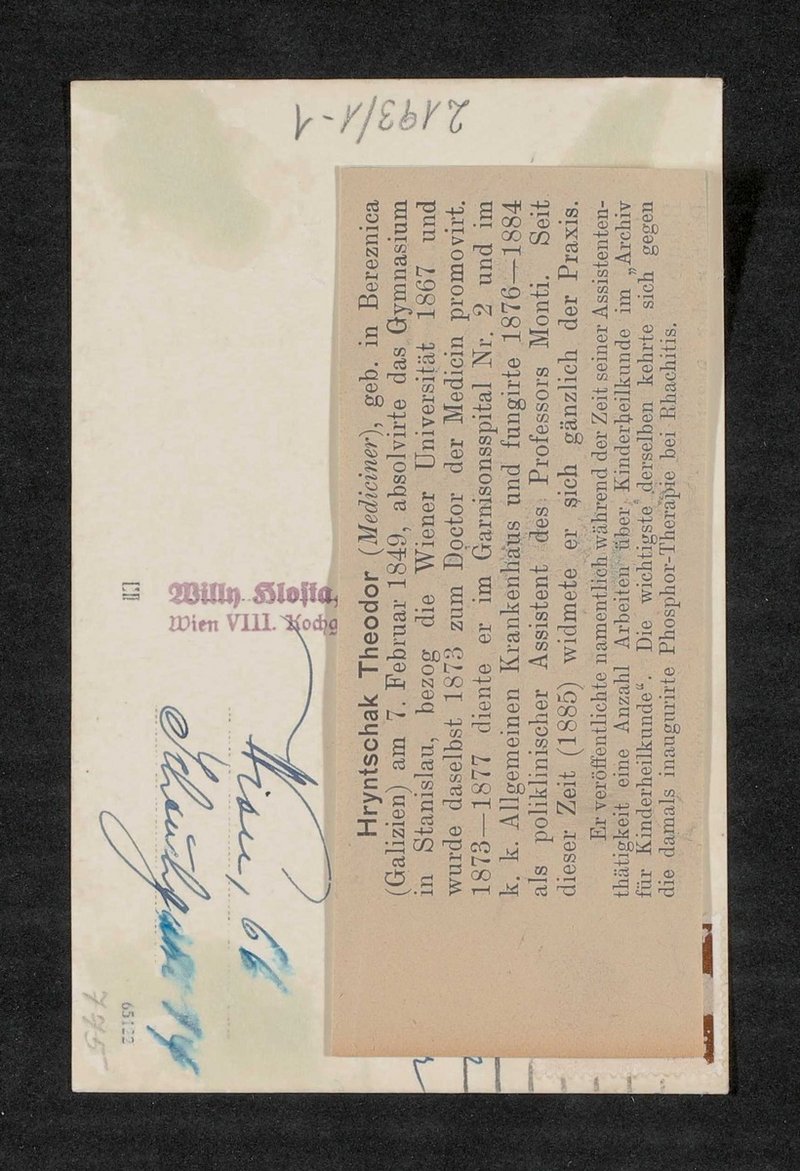 2193/1-1
Hryntschak Theodor (Mediciner), geb. in Bereznica
(Galizien) am 7. Februar 1849, absolvirte das Gymnasium
in Stanislau, bezog die Wiener Universität 1867 und
wurde daselbst 1873 zum Doctor der Medicin promovirt.
1873—1877 diente er im Garnisonsspital Nr. 2 und im
k. k. Allgemeinen Krankenhaus und fungirte 1876—1884
als poliklinischer Assistent des Professors Monti. Seit
dieser Zeit (1885) widmete er sich gänzlich der Praxis.
Er veröffentlichte namentlich während der Zeit seiner Assistenten-
thätigkeit eine Anzahl Arbeiten über Kinderheilkunde im „Archiv
für Kinderheilkunde“. Die wichtigste derselben kehrte sich gegen
die damals inaugurirte Phosphor-Therapie bei Rhachitis.
Willy Klofta,
Wien VIII. Kochg
Wien, 66
65122
775